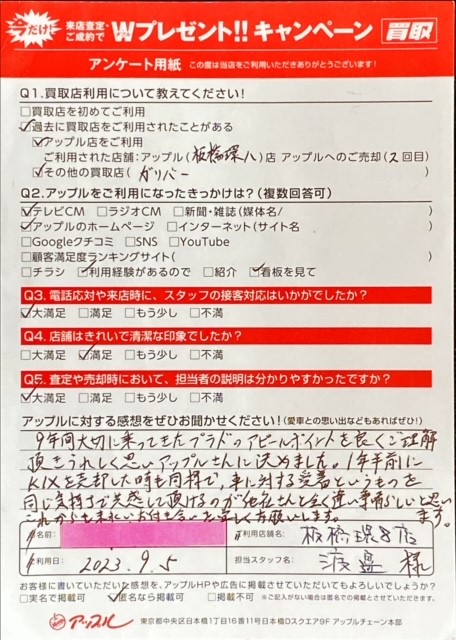 今だけ!
来店査定・
ご成約で Wプレゼント!!キャンペーン 買取
アンケート用紙 この度は当店をご利用いただきありがとうございます!
Q1.買取店利用について教えてください!
□買取店を初めてご利用
☑過去に買取店をご利用されたことがある
☑アップル店をご利用
ご利用された店舗:アップル(板橋環八)店 アップルへのご売却(2回目)
☑その他の買取店( ガリバー )
Q2.アップルをご利用になったきっかけは?(複数回答可)
☑テレビCM □ラジオCM □新聞・雑誌(媒体名/ )
☑アップルのホームページ □インターネット(サイト名 )
□Googleクチコミ □SNS □YouTube
□顧客満足度ランキングサイト( )
□チラシ ☑利用経験があるので □紹介 ☑看板を見て
Q3.電話応対や来店時に、スタッフの接客対応はいかがでしたか?
☑大満足 □満足 □もう少し □不満
Q4.店舗はきれいで清潔な印象でしたか?
□大満足 ☑満足 □もう少し □不満
Q5.査定や売却時において、担当者の説明は分かりやすかったですか?
☑大満足 □満足 □もう少し □不満
アップルに対する感想をぜひお聞かせください!(愛車との思い出などもあればぜひ!)
9年間大切に乗ってきたプラドのアピールポイントを良くご理解
頂きうれしく思いアップルさんに決めました。1年半前に
KIXを売却した時も同様で、車に対する愛着というものを
同じ気持ちで共感して頂けるのが他店さんと全く違い素晴らしいと思い
ます。
これからも末永いお付き合いを宜しくお願いします。
名前: ご利用店舗名: 板橋環8店
ご利用日: 2023.9.5 担当スタッフ名: 渡盛 様
お客様に書いていただいた感想を、アップルHPや広告に掲載させていただいてもよろしいでしょうか?
□実名で掲載可 ☑匿名なら掲載可 □掲載不可 ※ご記入がない場合は匿名での掲載とさせていただきます
アップル 東京都中央区日本橋1丁目16番11号日本橋Dスクエア9F アップルチェーン本部